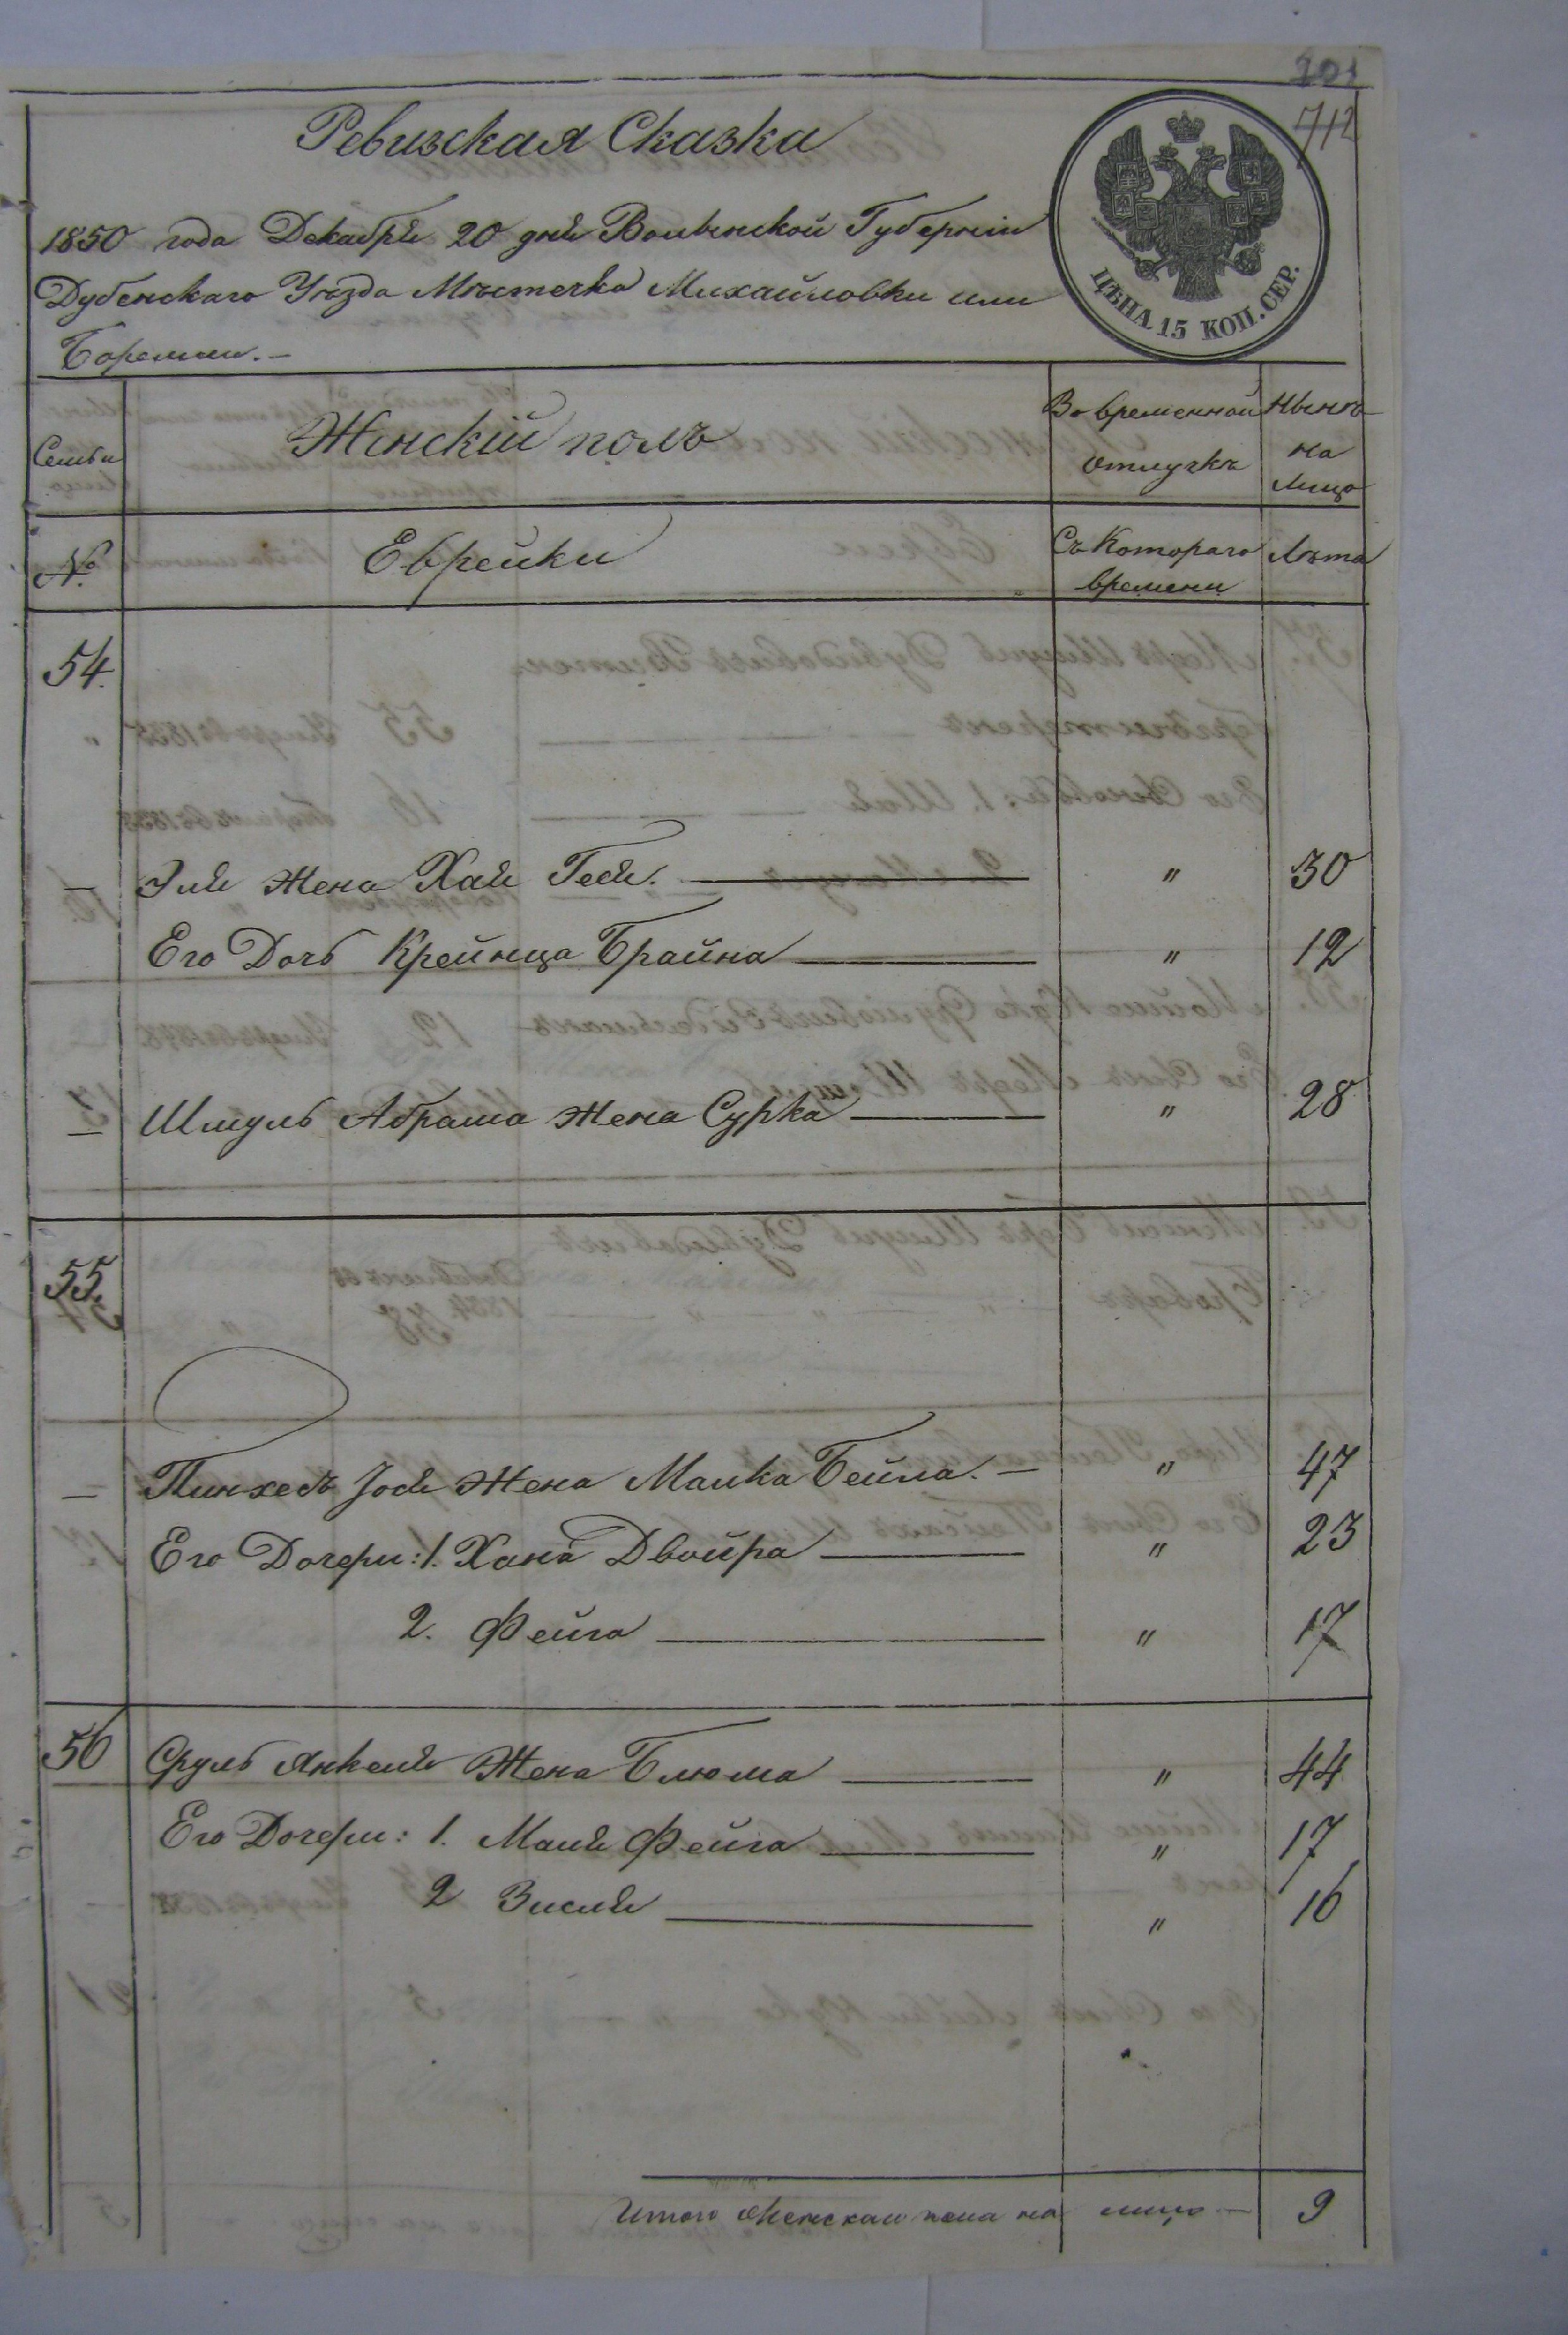 201
712
Ревизская Сказка
1850 года Декабря 20 дня Волынской Губерніи
Дубенскаго Уѣзда Мѣстечка Михайловки или
Боремли. —
ЦѢНА 15 КОП. СЕР.
Семьи Женскій полъ Во временной отлучкѣ Нынѣ на лицо
№ Еврейки Съ Котораго времени Лѣта
54.
— Эля Жена Хая Геся. — " 30
Его Дочь Крейнца Брайна — " 12
— Шмуль Абрама Жена Сурка — " 28
55.
— Пинхесъ Іося Жена Малка Бейла. — " 47
Его Дочери: 1. Хана Двойра — " 23
2. Фейга — " 17
56 Сруль Янкеля Жена Блюма — " 44
Его Дочери: 1. Маля Фейга — " 17
2 Зисля — " 16
Итого Женскаго пола на лицо — 9